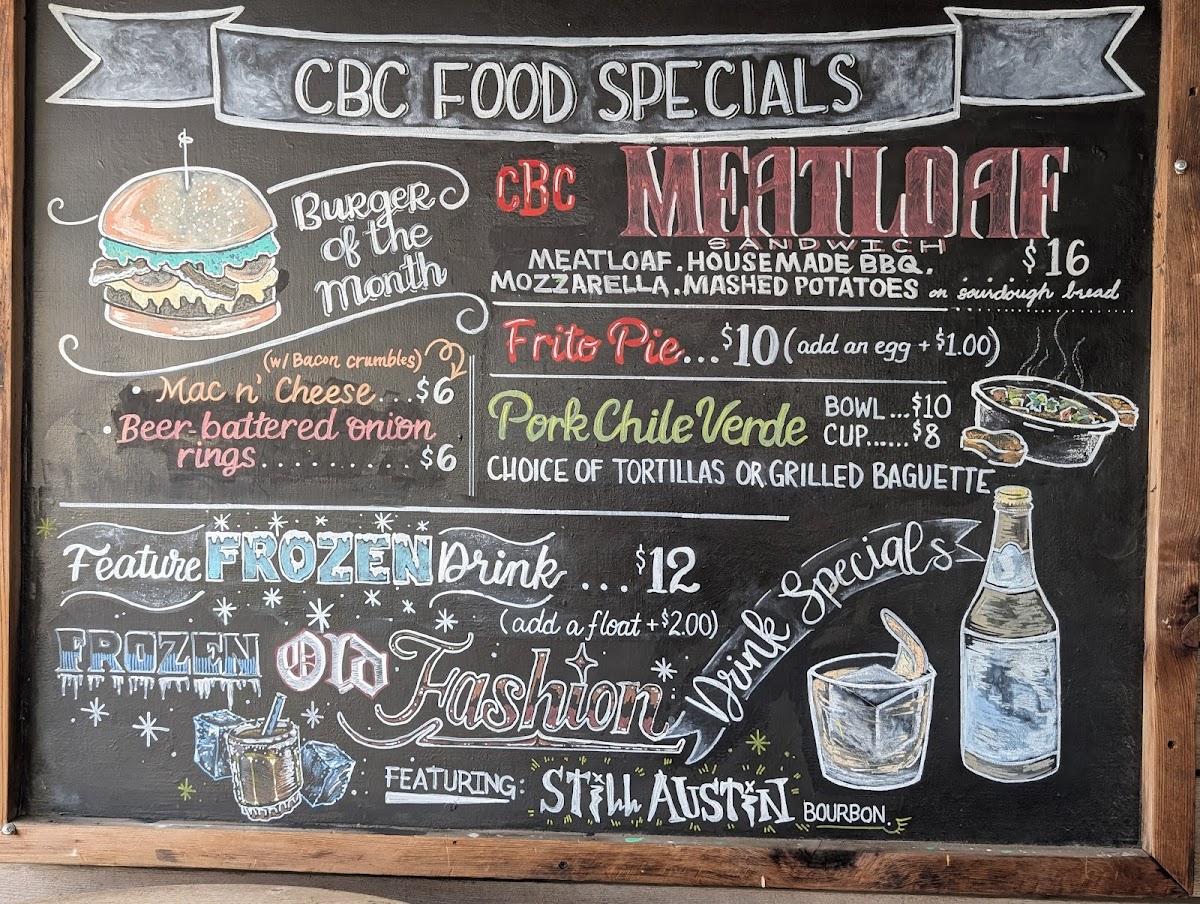 CBC FOOD SPECIALS
Burger
of the
Month
(w/ Bacon crumbles)
• Mac n' Cheese...$6
• Beer-battered onion
rings..........$6
CBC MEATLOAF
SANDWICH
$16
MEATLOAF. HOUSEMADE BBQ.
MOZZARELLA. MASHED POTATOES on sourdough bread
Frito Pie...$10 (add an egg +$1.00)
Pork Chile Verde
BOWL...$10
CUP......$8
CHOICE OF TORTILLAS OR GRILLED BAGUETTE
Feature FROZEN Drink ...$12
(add a float +$2.00)
FROZEN Old Fashion
FEATURING: Still AUSTiN BOURBON.
Drink Specials